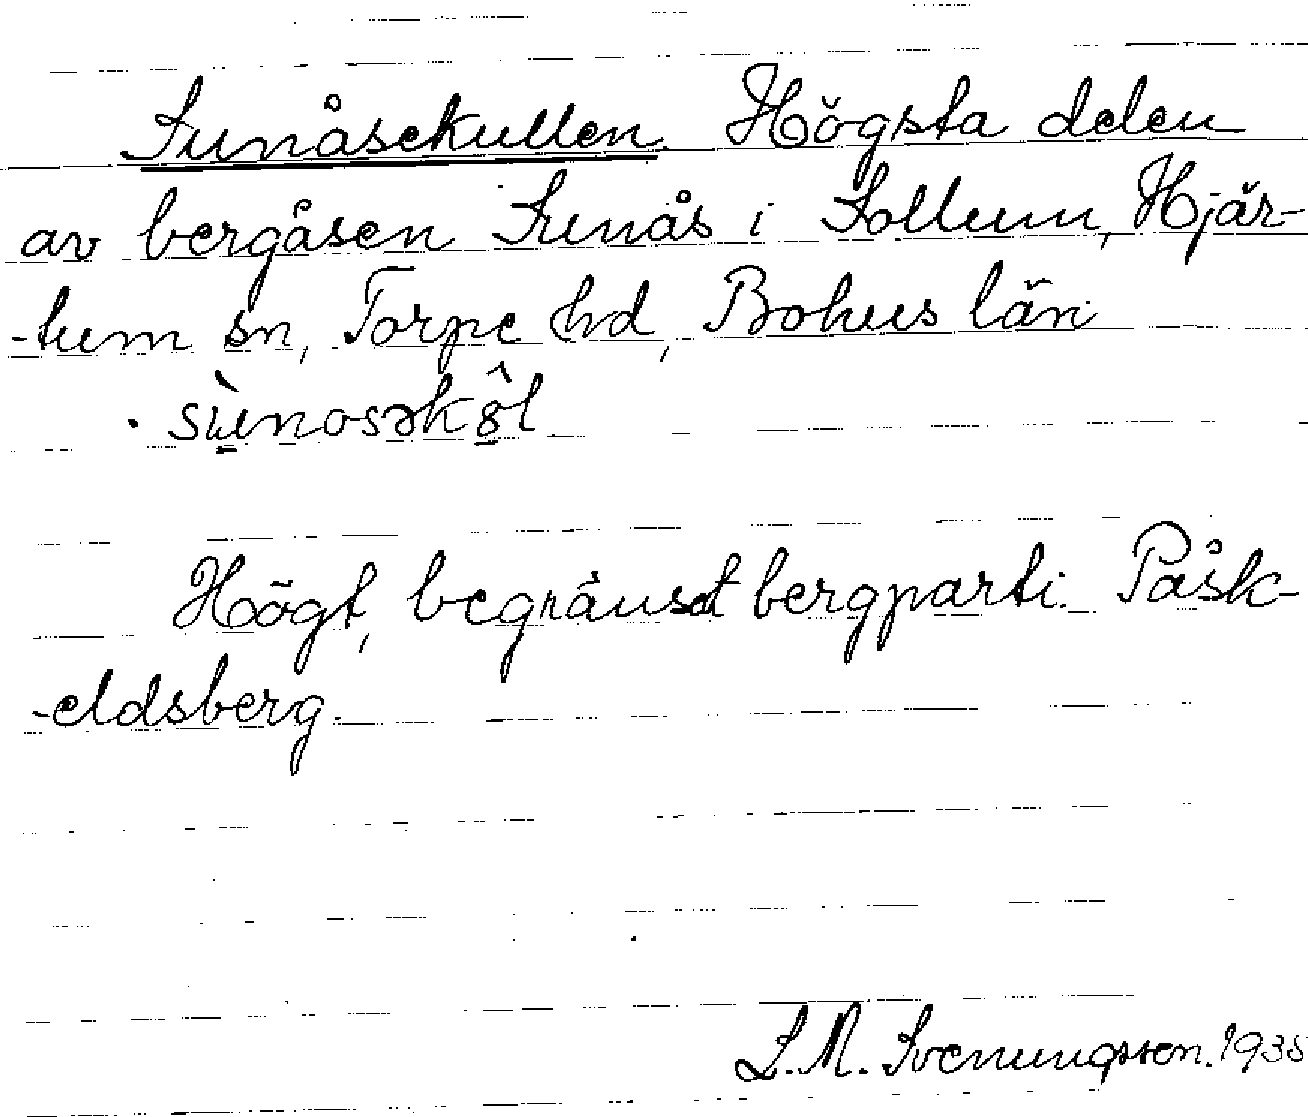 Sunåsekullen Högsta delen
av bergåsen Sunås i Sollum, Hjär-
-tum sn, Torpe hd, Bohus län
Högt, begränsat bergparti. Påsk-
-eldsberg.
S. M. Svenungsson. 1935